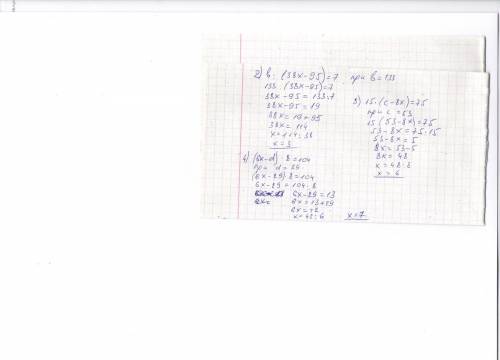 2) b : (38x-95)=7 при b=133
133 : (38x-95)=7
38x-95=133:7
38x-95=19
38x=19+95
38x=114
x=114:38
x=3
3) 15·(c-8x)=75
при c=53
15(53-8x)=75
53-8x=75:15
53-8x=5
8x=53-5
8x=48
x=48:8
x=6
4) (6x-d)·8=104
при d=29
(6x-29)·8=104
6x-29=104:8
6x-29=13
6x=13+29
6x=42
x=42:6
x=7